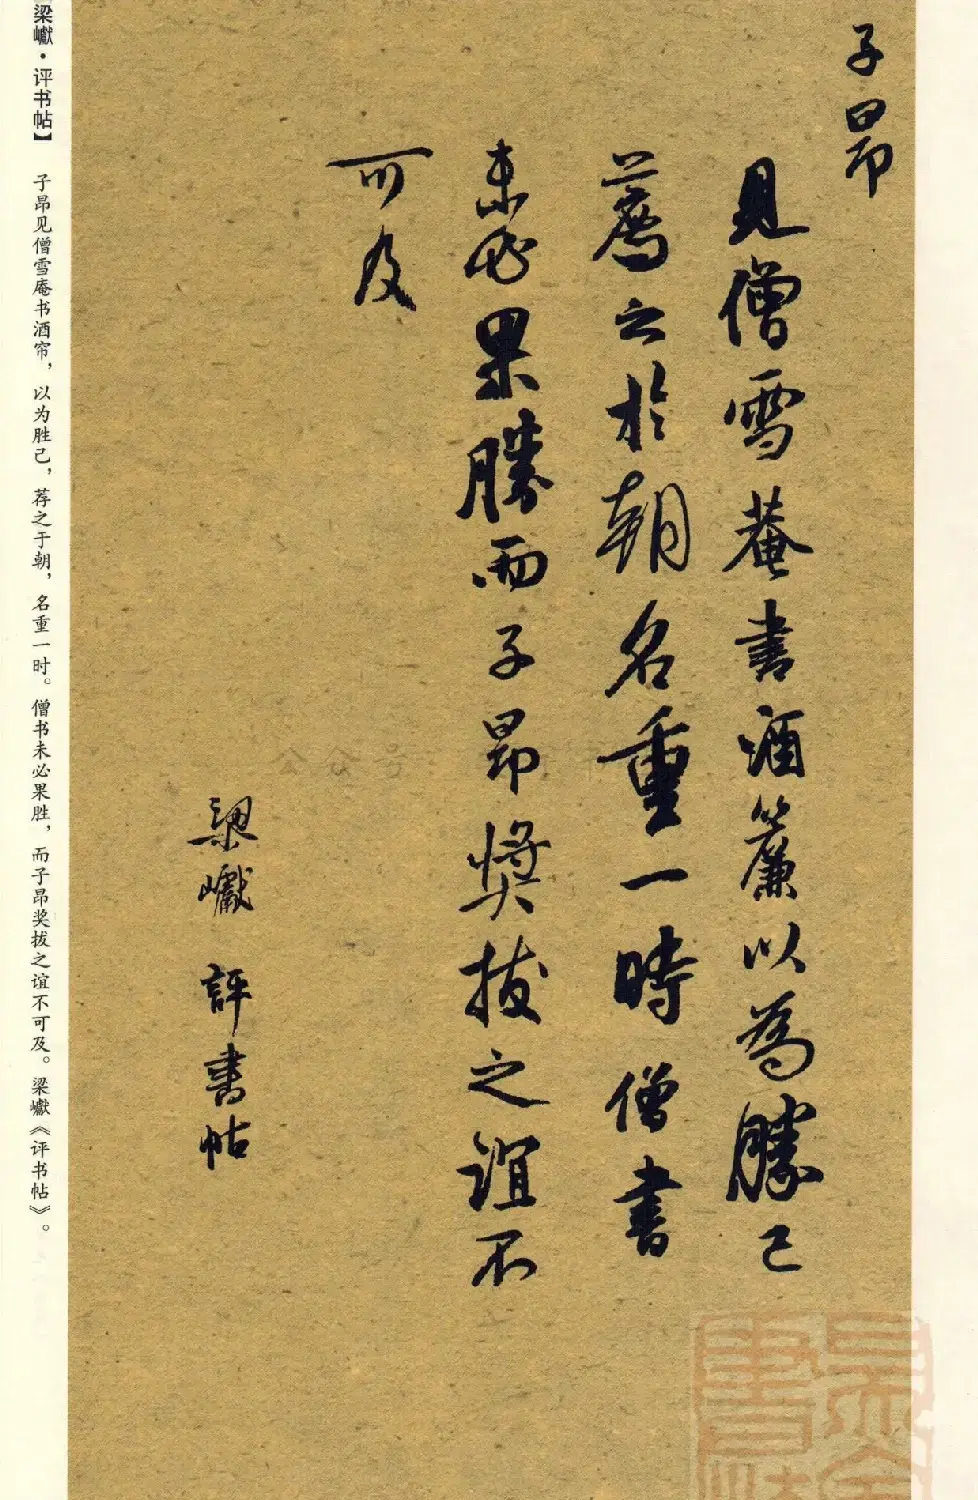 子昂
見僧雪菴書酒簾以為勝己
薦之於朝名重一時僧書
未必果勝而子昂獎拔之誼不
可及
梁巘 評書帖
梁巘·评书帖】
子昂见僧雪庵书酒帘，以为胜己，荐之于朝，名重一时。僧书未必果胜，而子昂奖拔之谊不可及。梁巘《评书帖》。